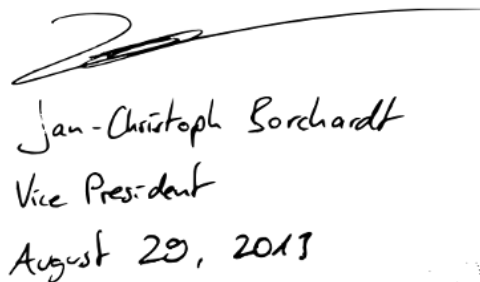 Jan-Christoph Borchardt
Vice President
August 29, 2013